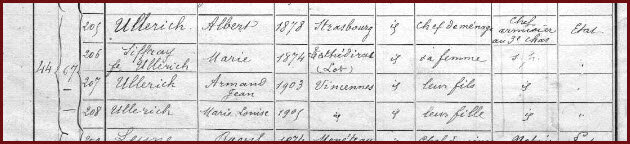 205 Ullerich Albert 1878 Strasbourg id Chef de ménage Chef armurier au 3e chas Etat
206 Siffray fe Ullerich Marie 1874 (Lot) id sa femme s.p.
44 67
207 Ullerich Armand Jean 1903 Vincennes id leur fils id
208 Ullerich Marie Louise 1905 id id leur fille id